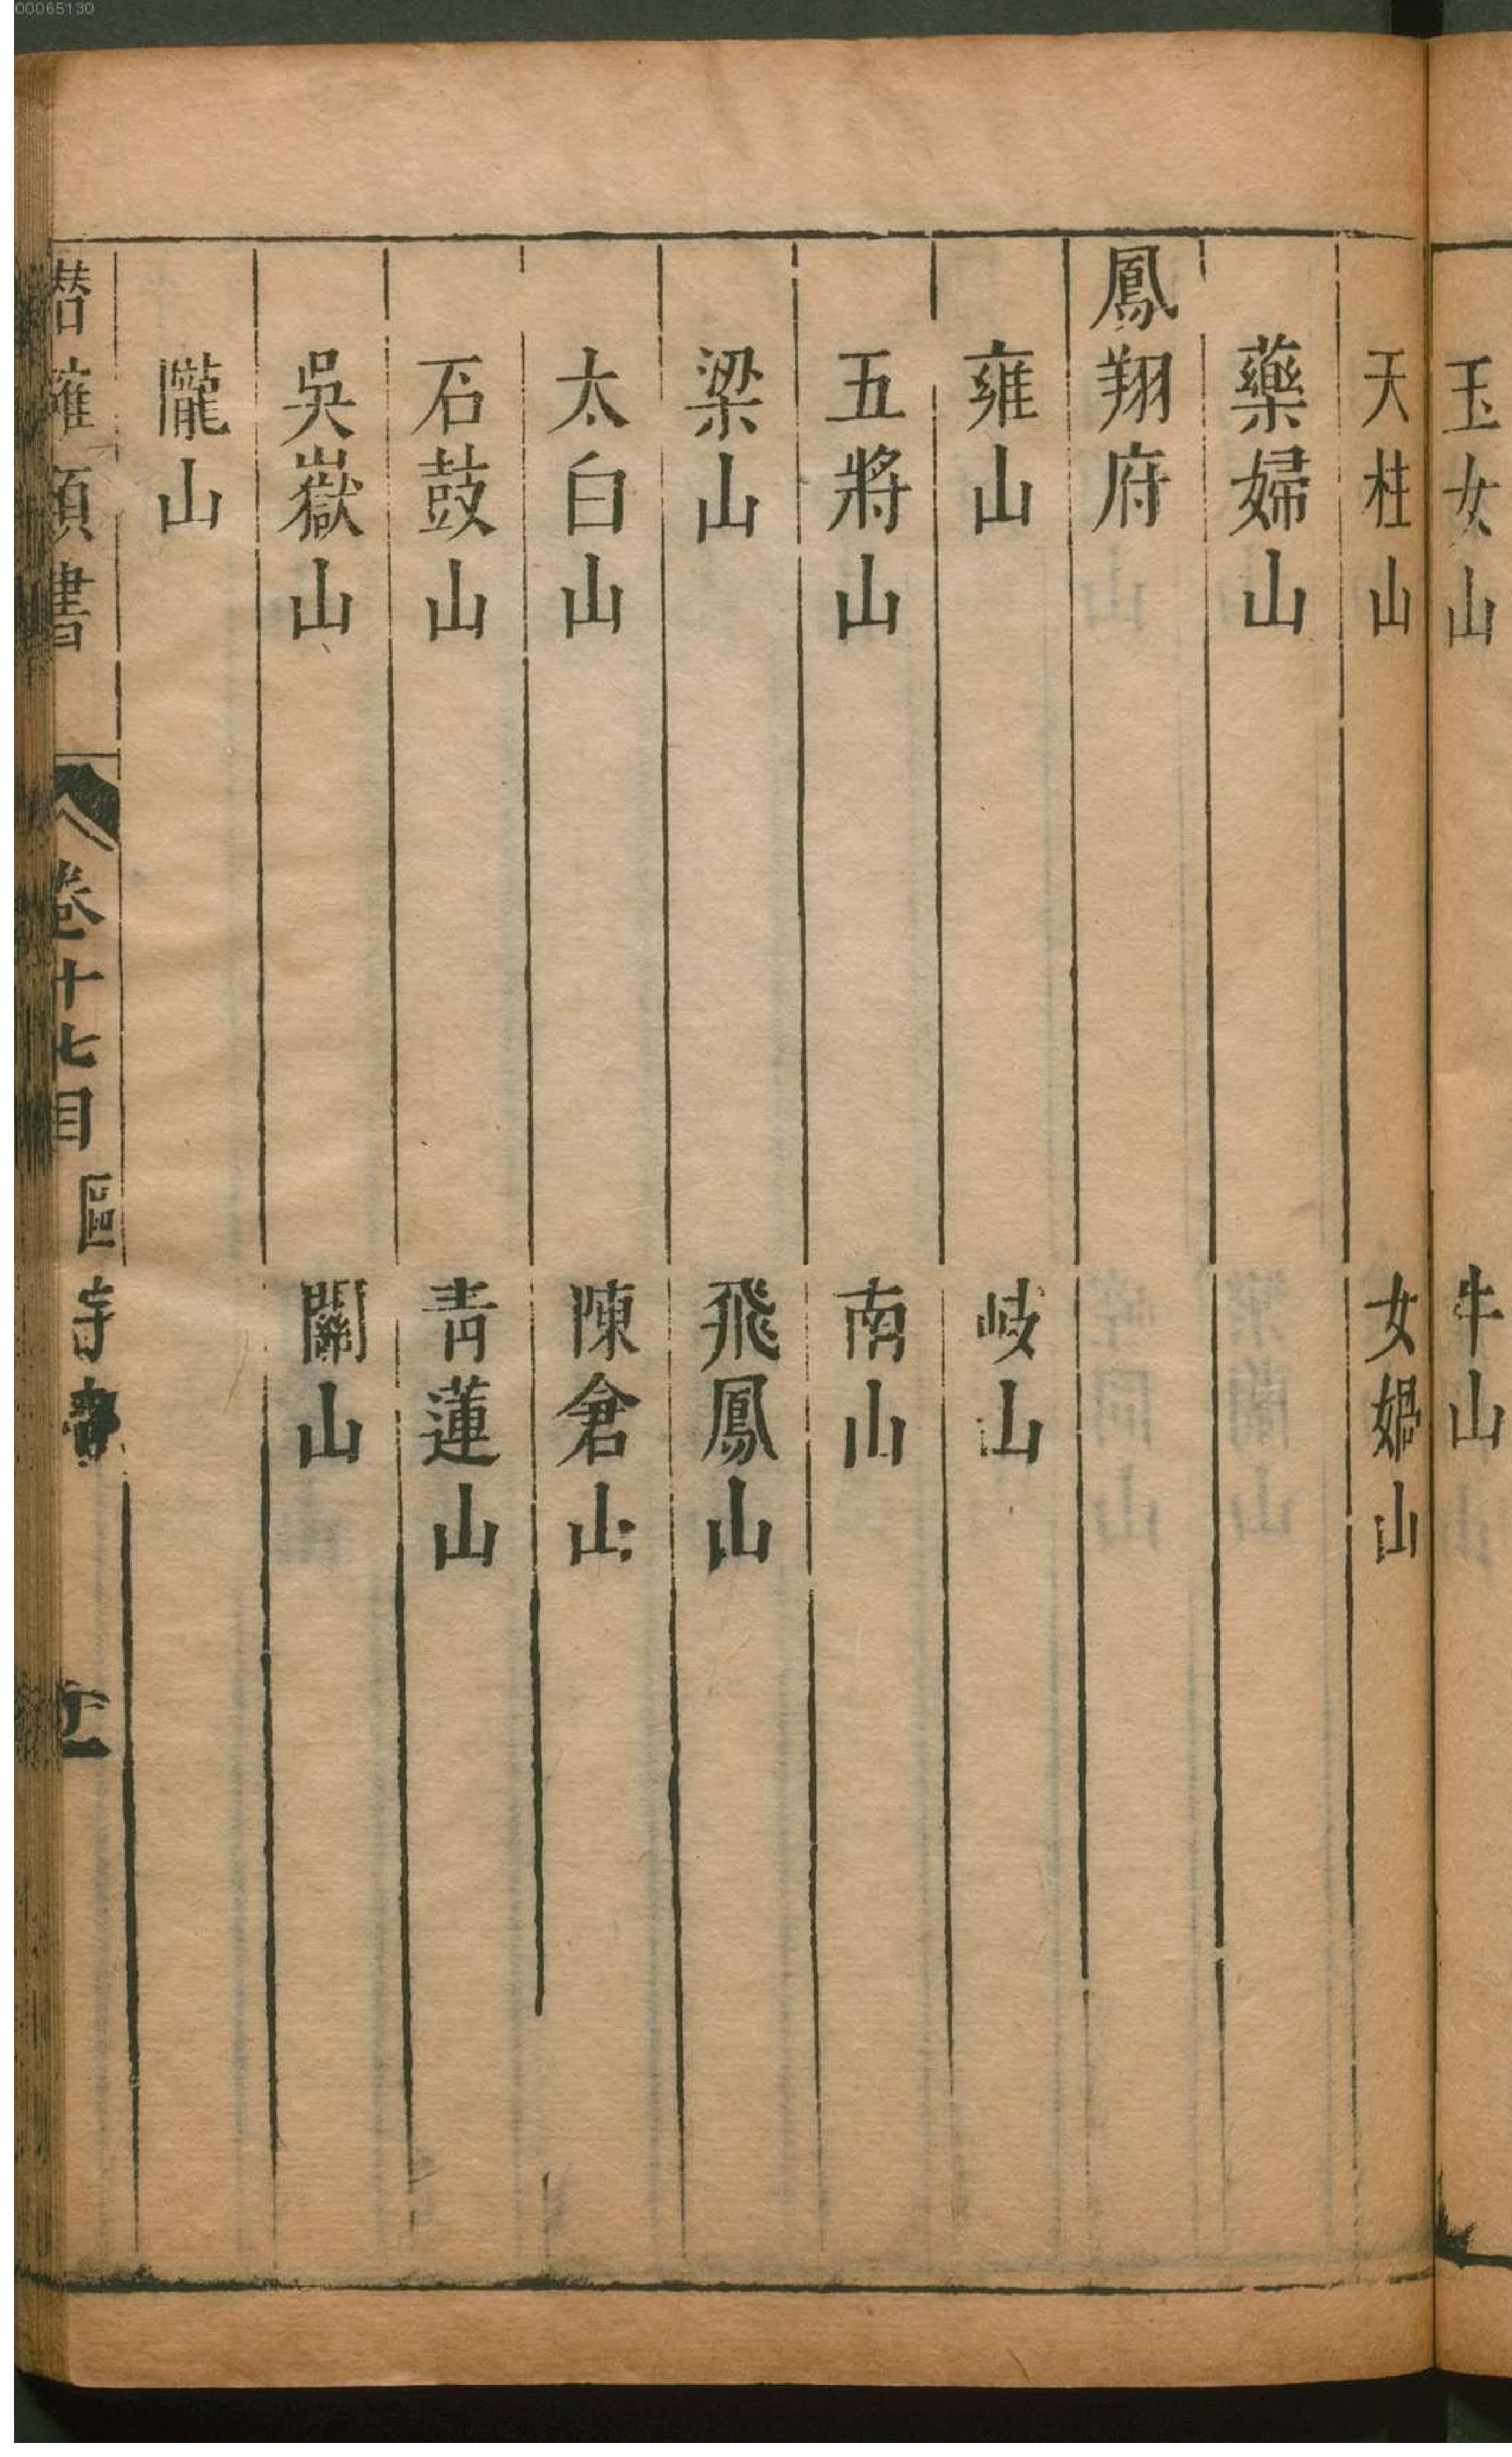 00065130
玉女山 牛山
天柱山 女媧山
藥婦山
鳳翔府
雍山 岐山
五將山 南山
梁山 飛鳳山
太白山 陳倉山
石鼓山 青蓮山
吳嶽山 關山
隴山
潛確類書 卷十七目 區宇